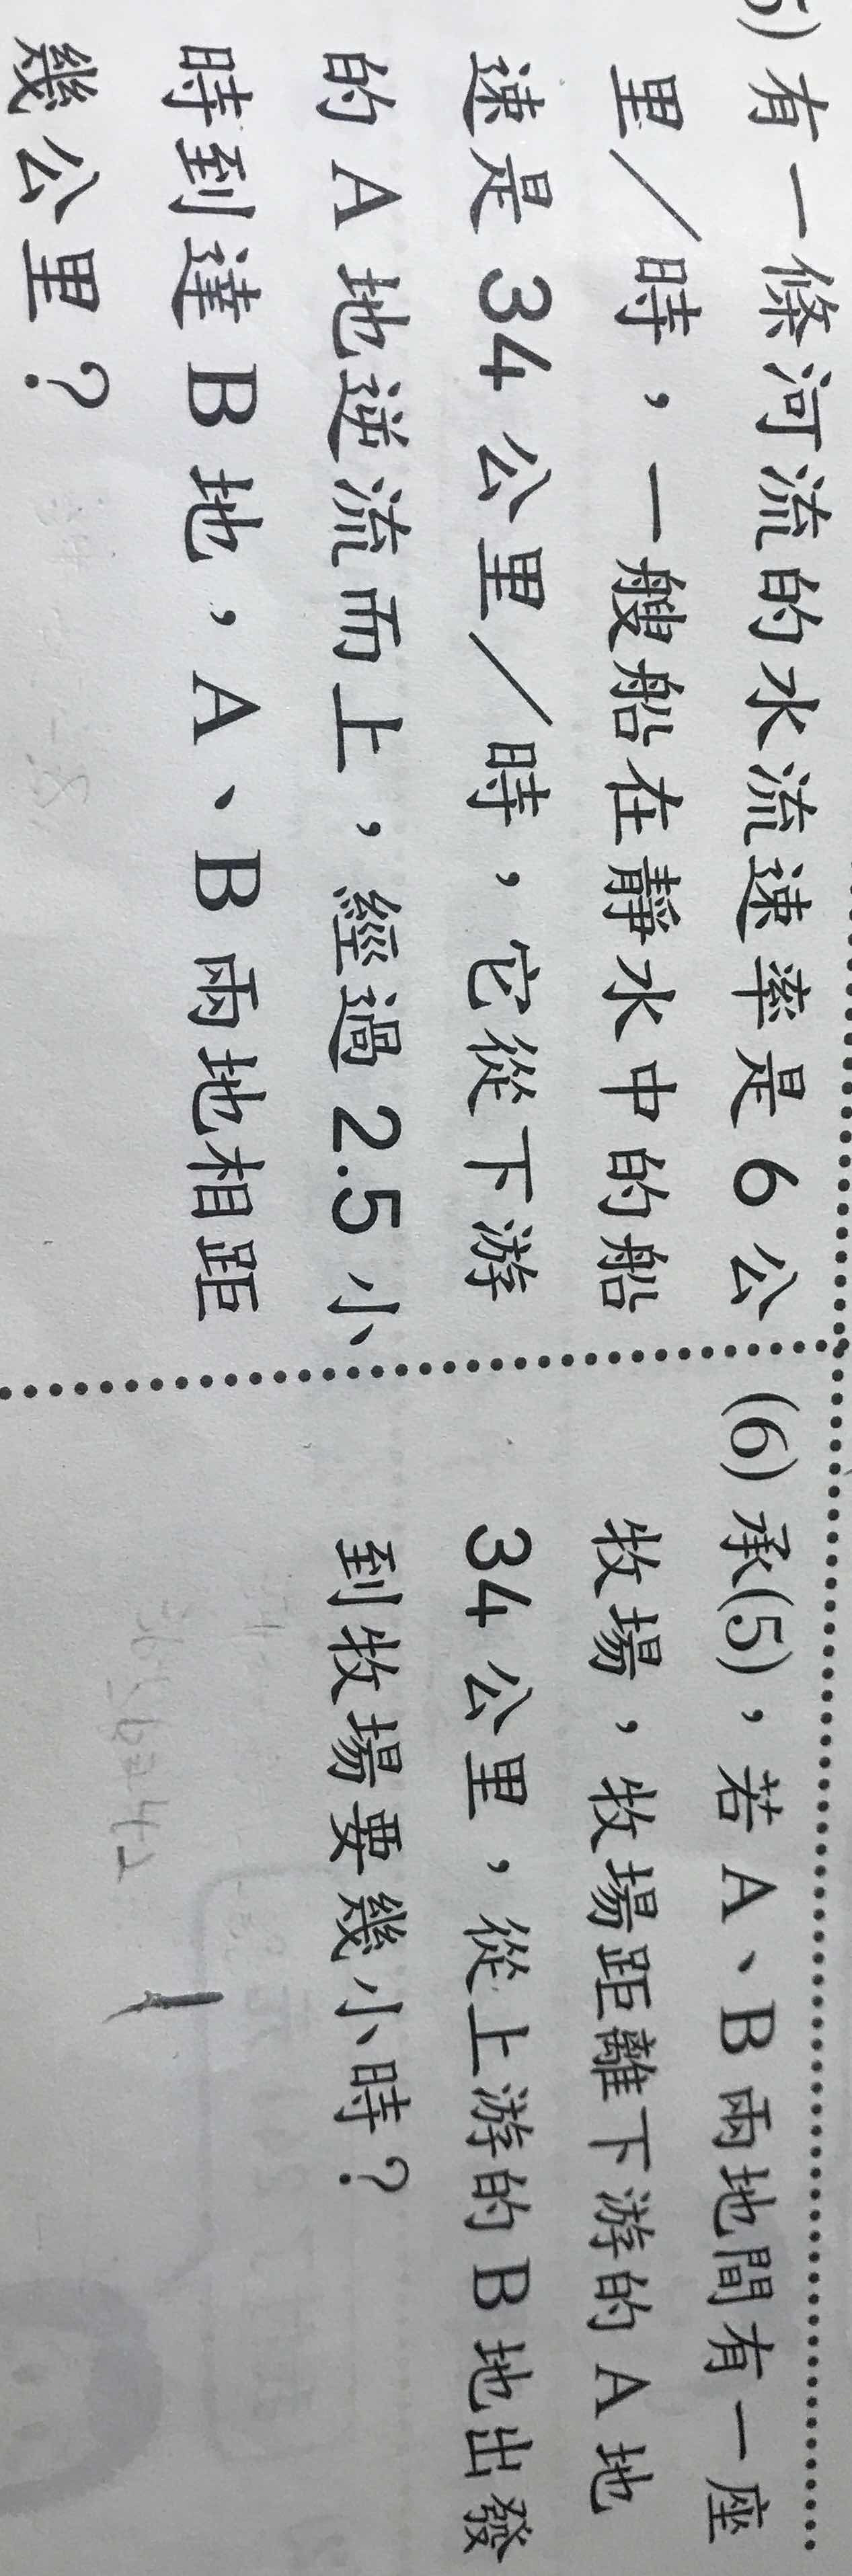 5) 有一條河流的水流速率是 6 公
里／時，一艘船在靜水中的船
速是 34 公里／時，它從下游
的 A 地逆流而上，經過 2.5 小
時到達 B 地，A、B 兩地相距
幾公里？
(6) 承(5)，若 A、B 兩地間有一座
牧場，牧場距離下游的 A 地
34 公里，從上游的 B 地出發
到牧場要幾小時？